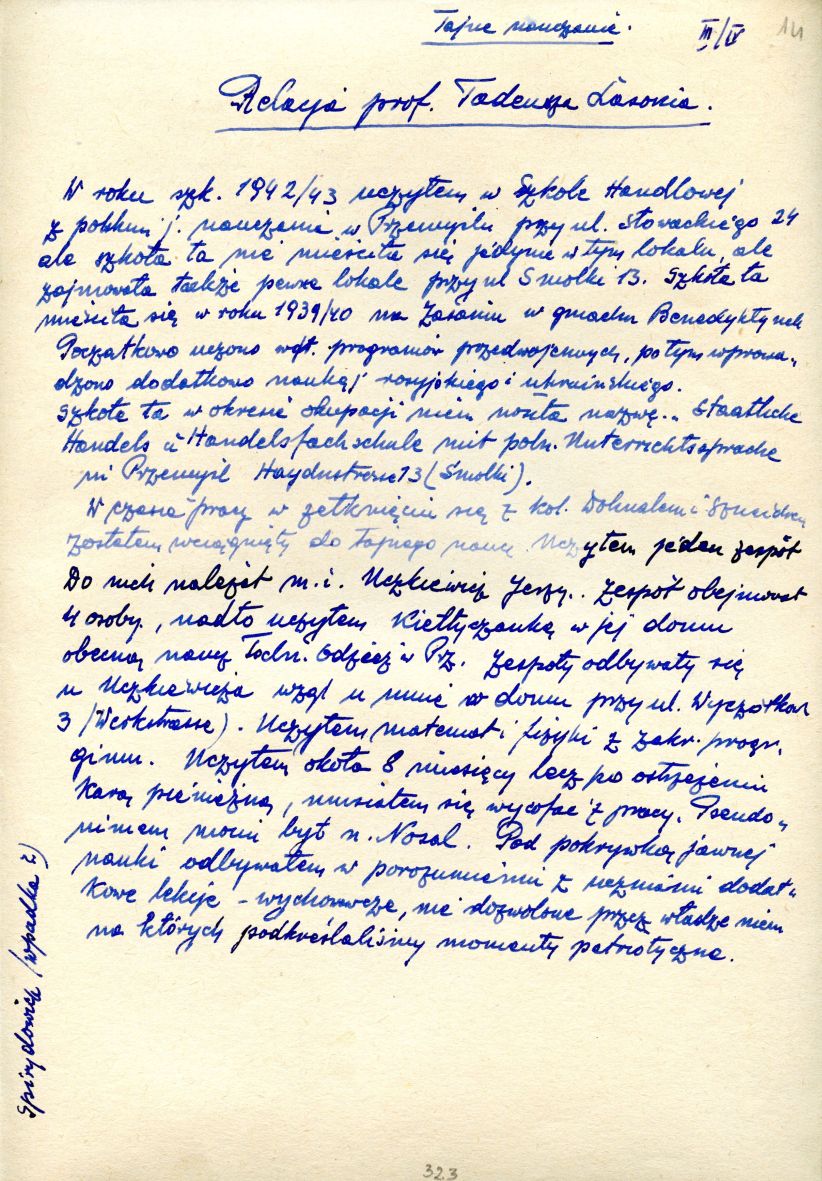 Tajne nauczanie.
III/IV
141
Relacja prof. Tadeusza Lasonia.
W roku szk. 1942/43 uczyłem w Szkole Handlowej
z polskim j. nauczania w Przemyślu przy ul. Słowackiego 24
ale szkoła ta nie mieściła się jedynie w tym lokalu, ale
zajmowała także pewne lokale przy ul Smolki 13. Szkoła ta
mieściła się w roku 1939/40 na Zasaniu w gmachu Benedyktynek
Początkowo uczono wdł. programów przedwojennych, potym wprowa-
dzono dodatkowo naukę j rosyjskiego i ukraińskiego.
Szkoła ta w okresie okupacji niem nosiła nazwę.. Staatliche
Handels u Handelsfachschule mit poln. Unterrichtssprache
in Przemyśl Haydnstrasse 13 (Smolki).
W czasie pracy w zetknięciu się z kol. Dohnalem i
zostałem wciągnięty do tajnego naucz. Uczyłem jeden zespół
Do nich należał m. i. Uczkiewicz Jerzy.. Zespół obejmował
4 osoby, nadto uczyłem Kiełtyczankę w jej domu
obecną naucz Techn. Odzież w Prz. Zespoły odbywały się
u Uczkiewicza wzgl u mnie w domu przy ul. Wyczółkow
3 /Weckstrasse). Uczyłem matemat i fizyki z zakr. progr.
gimn. Uczyłem około 8 miesięcy lecz po ostrzeżeniu
karą pieniężną, musiałem się wycofać z pracy. Pseudo-
nimem moim był n. Nosal. Pod pokrywką jawnej
nauki odbywałem w porozumieniu z uczniami dodat-
kowe lekcje - wychowawcze, nie dozwolone przez władze niem
na których podkreślaliśmy momenty patriotyczne.
Spirydowicz (wpadka ?)
323